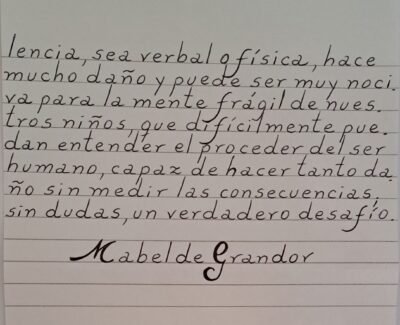 lencia, sea verbal o física, hace
mucho daño y puede ser muy noci.
va para la mente frágil de nues.
tros niños, que difícilmente pue.
dan entender el proceder del ser
humano, capaz de hacer tanto da.
ño sin medir las consecuencias,
sin dudas, un verdadero desafío.
Mabel de Grandor